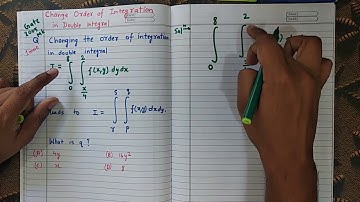 Change Order of Integration
in Double Integral
Gate
2004
Q Changing the order of integration
in double integral
I = ∫₀⁸ ∫_{x/4}^{2} f(x,y) dy dx
leads to I = ∫_r^s ∫_p^q f(x,y) dx dy.
What is q ?
(A) 4y (B) 16y²
(C) x (D) 8
Sol:-
∫₀⁸ ∫ 2